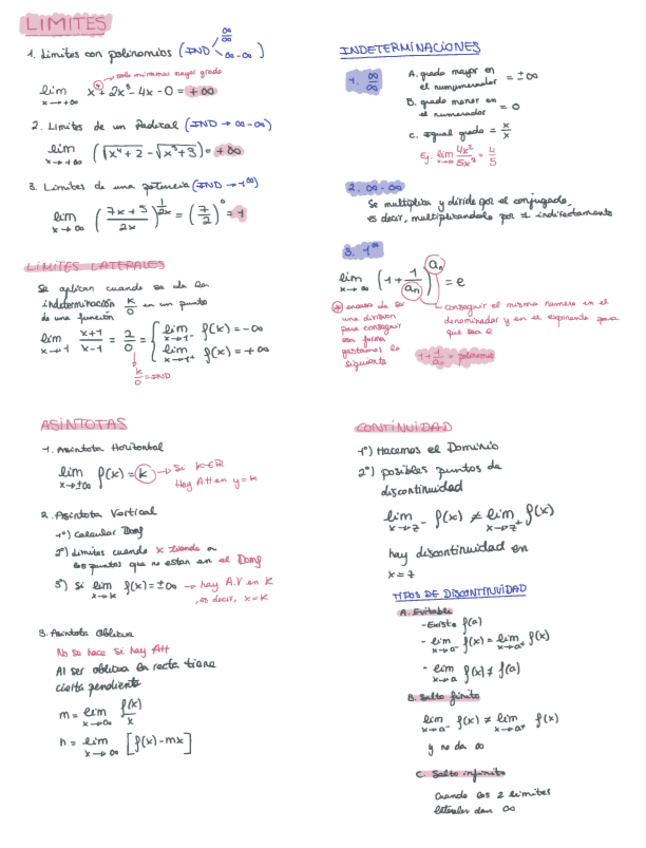 LIMITES
1. Limites con polinomios (IND ∞/∞ ∞-∞)
→ solo miramos mayor grado
lim x→+∞ x⁴ + 2x³ - 4x - 0 = +∞
2. Limites de un Radical (IND → ∞-∞)
lim x→+∞ (√x⁴+2 - √x³+3) = +∞
3. Limites de una potencia (IND → 1^∞)
lim x→∞ ((7x+3)/2x)^(1/2x) = (7/2)⁰ = 1
LIMITES LATERALES
Se aplican cuando se da la
indeterminación k/0 en un punto
de una función
lim x→1 (x+1)/(x-1) = 2/0 = { lim x→1⁻ f(x) = -∞
lim x→1⁺ f(x) = +∞
k/0 = IND
INDETERMINACIONES
1. ∞/∞
A. grado mayor en
el numerador = ±∞
B. grado menor en
el numerador = 0
C. Igual grado = x/x
Ej: lim x→∞ 4x²/5x² = 4/5
2. ∞-∞
Se multiplica y divide por el conjugado,
es decir, multiplicandolo por 1 indirectamente
3. 1^∞
lim x→∞ (1 + 1/an)^an = e
en caso de ser
una division
para conseguir
esa forma
gastamos lo
siguiente
conseguir el mismo numero en el
denominador y en el exponente para
que sea e
1 + 1/an = polinomio
ASINTOTAS
1. Asintota Horizontal
lim x→±∞ f(x) = k → Si k∈R
Hay A.H en y=k
2. Asintota Vertical
1º) Calcular Domf
2º) Limites cuando x tiende a
los puntos que no estan en el Domf
3º) Si lim x→k f(x) = ±∞ → hay A.V en k
, es decir, x=k
3. Asintota Oblicua
No se hace si hay AH
Al ser oblicua la recta tiene
cierta pendiente
m = lim x→∞ f(x)/x
n = lim x→∞ [f(x) - mx]
CONTINUIDAD
1º) Hacemos el Dominio
2º) posibles puntos de
discontinuidad
lim x→7⁻ f(x) ≠ lim x→7⁺ f(x)
hay discontinuidad en
x=7
TIPOS DE DISCONTINUIDAD
A. Evitable
- Existe f(a)
- lim x→a⁻ f(x) = lim x→a⁺ f(x)
- lim x→a f(x) ≠ f(a)
B. Salto finito
lim x→a⁻ f(x) ≠ lim x→a⁺ f(x)
y no da ∞
C. Salto infinito
Cuando los 2 limites
laterales dan ∞